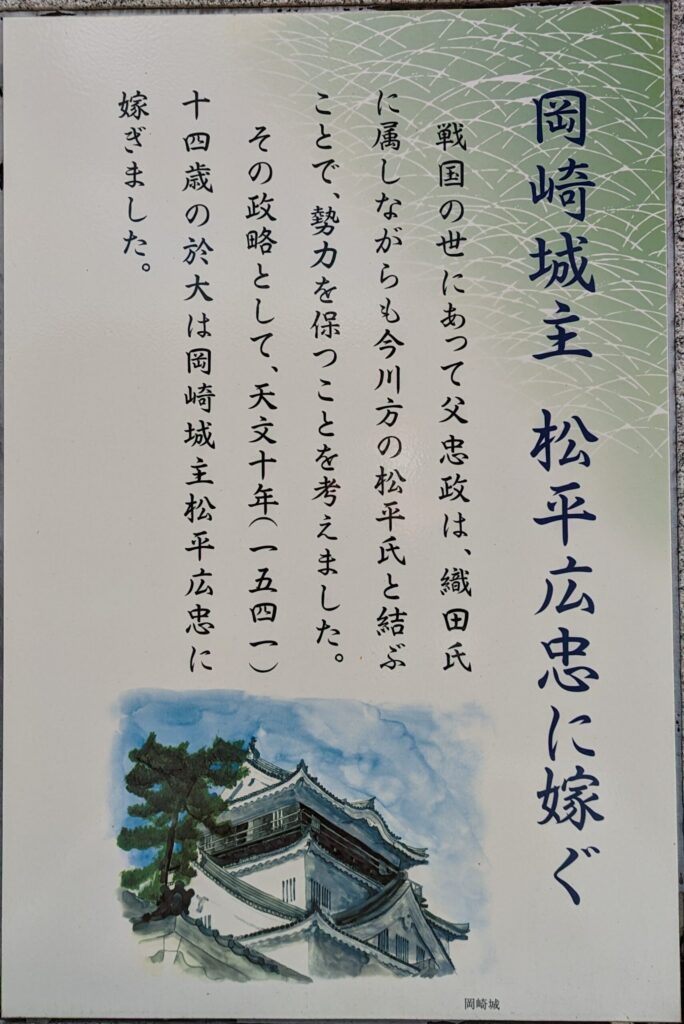 岡崎城主　松平広忠に嫁ぐ
戦国の世にあって父忠政は、織田氏
に属しながらも今川方の松平氏と結ぶ
ことで、勢力を保つことを考えました。
その政略として、天文十年（一五四一）
十四歳の於大は岡崎城主松平広忠に
嫁ぎました。
岡崎城